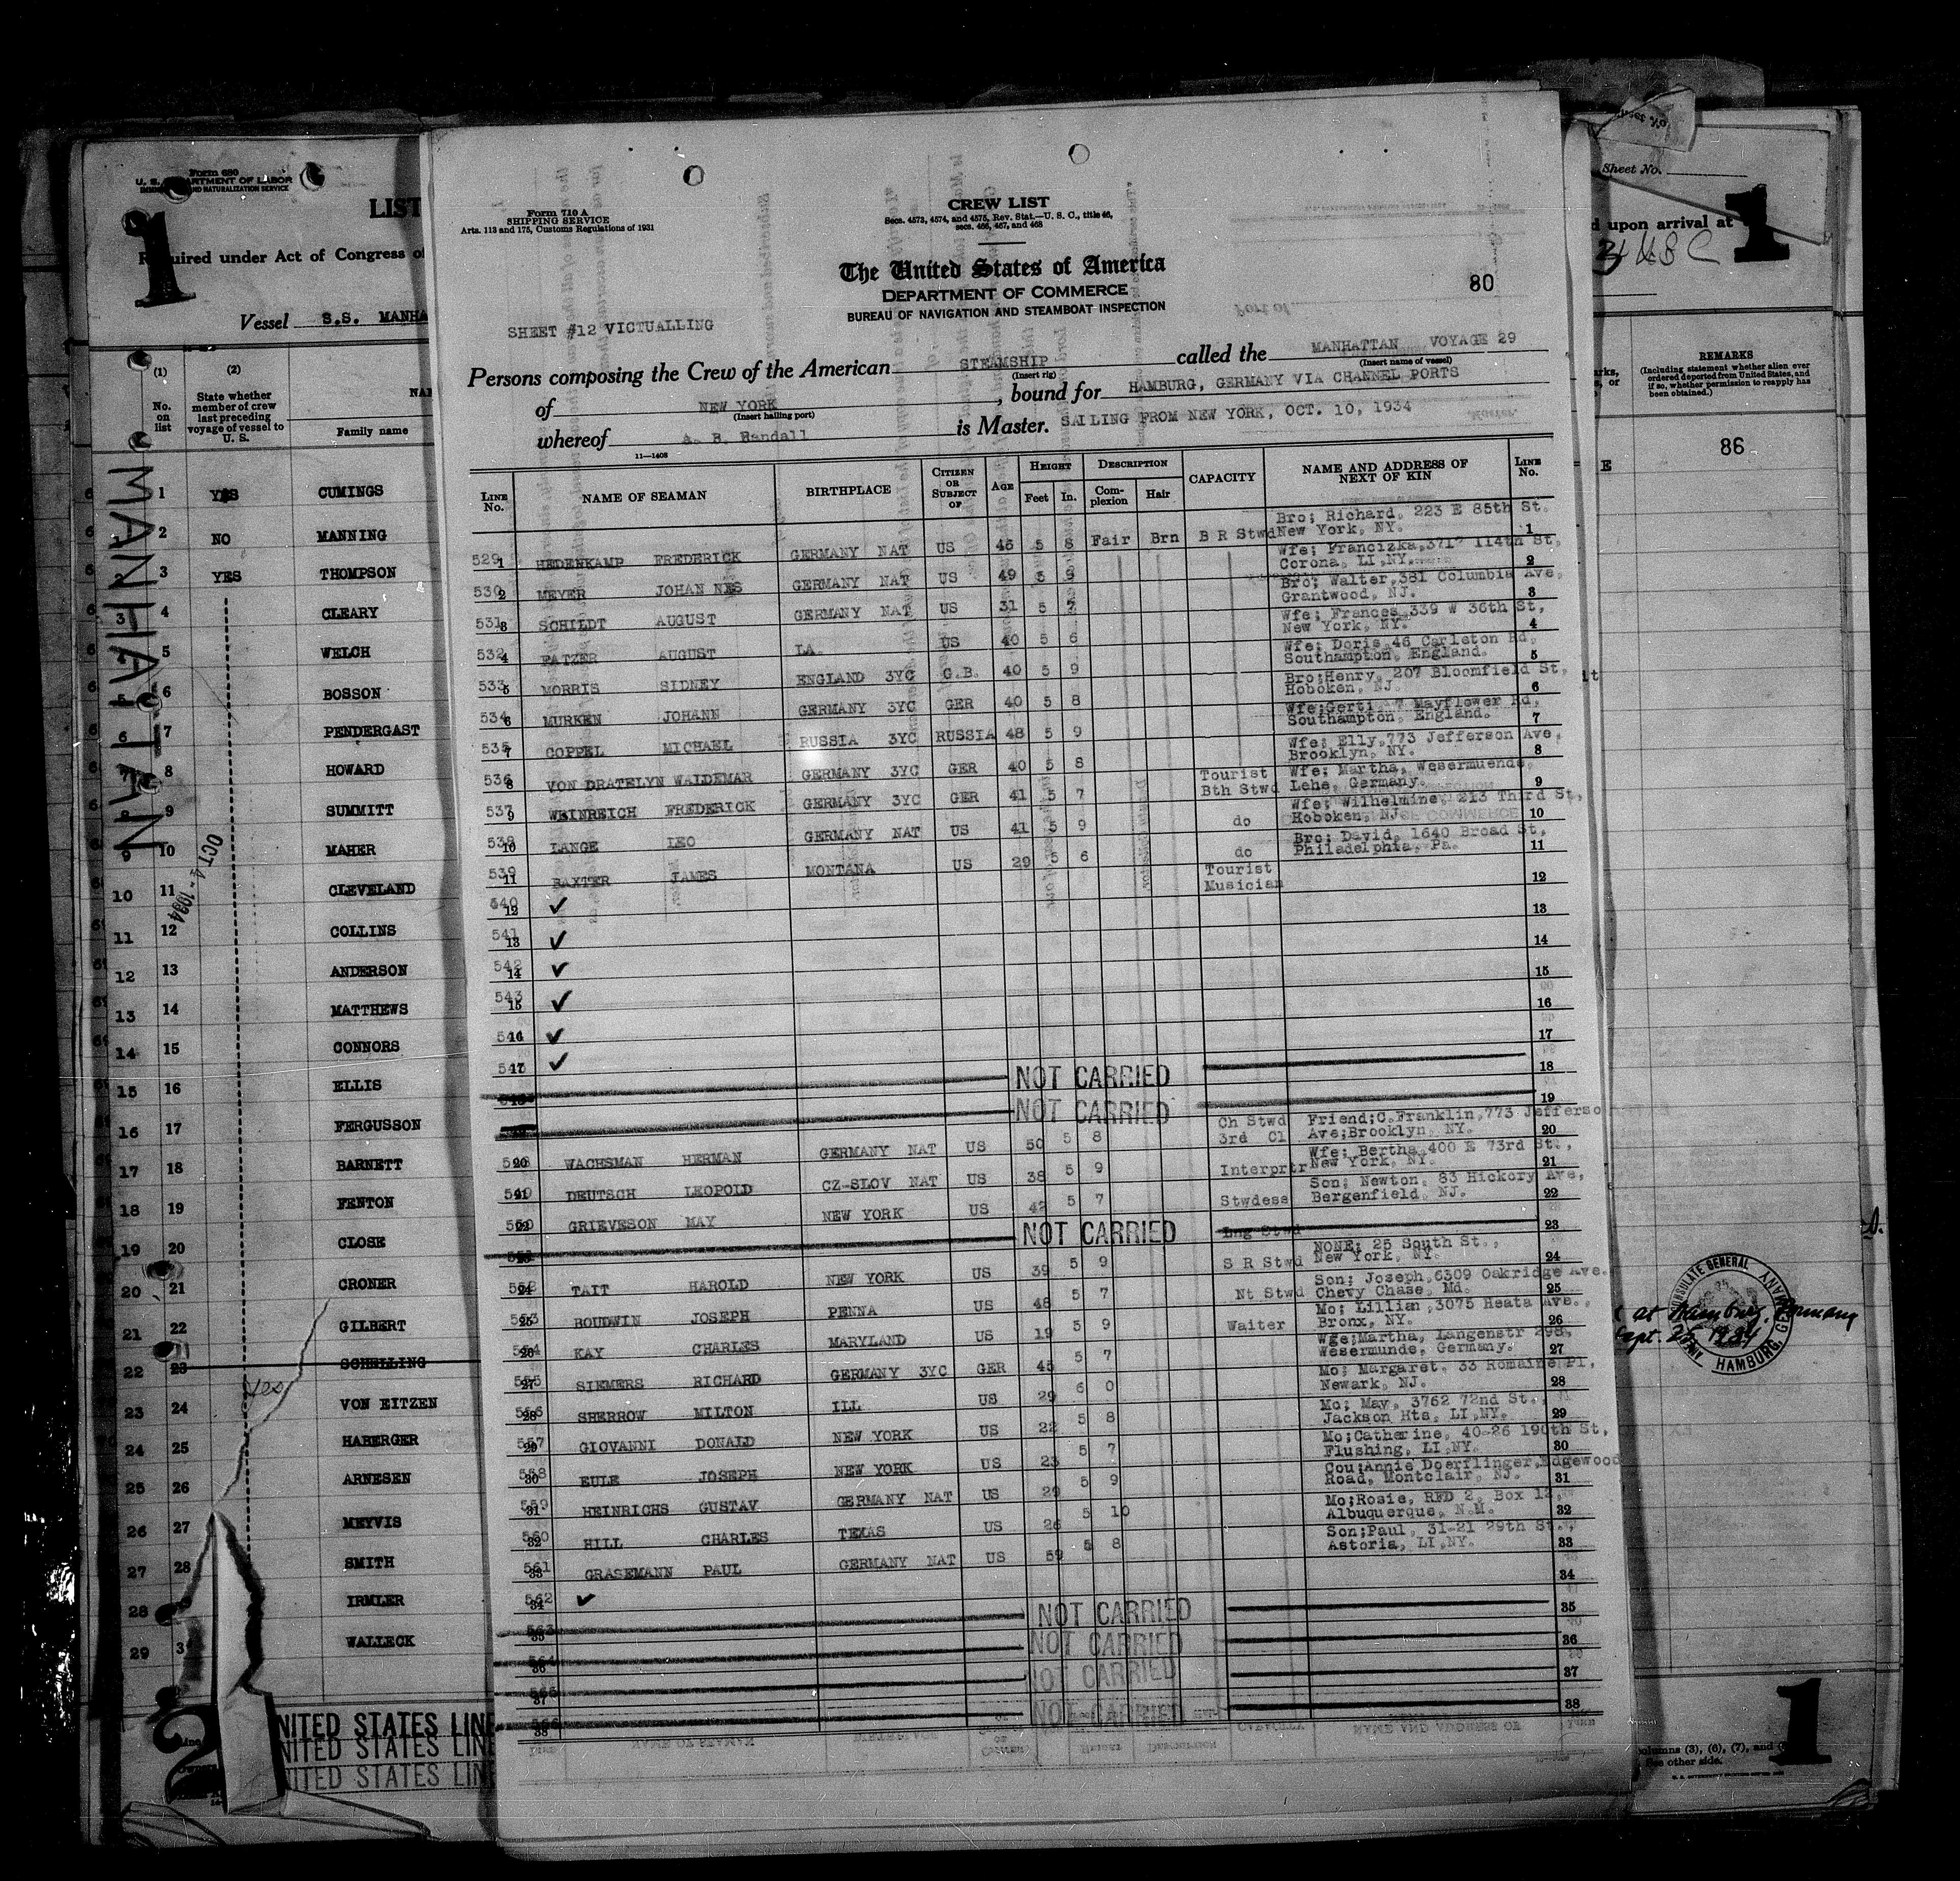 Form 680
U. S. DEPARTMENT OF LABOR
IMMIGRATION AND NATURALIZATION SERVICE
1
LIST
Required under Act of Congress of
Vessel S.S. MANHA
(1) (2)
No. on list
State whether member of crew last preceding voyage of vessel to U. S.
NA
Family name
MANHATTAN
OCT 4 - 1934
1 1 YES CUMINGS
2 2 NO MANNING
3 YES THOMPSON
3 4 CLEARY
5 WELCH
5 6 BOSSON
6 7 PENDERGAST
7 8 HOWARD
8 9 SUMMITT
9 10 MAHER
10 11 CLEVELAND
11 12 COLLINS
12 13 ANDERSON
13 14 MATTHEWS
14 15 CONNORS
15 16 ELLIS
16 17 FERGUSSON
17 18 BARNETT
18 19 FENTON
19 20 CLOSE
20 21 CRONER
21 22 GILBERT
22 23 SCHELLING
yes
23 24 VON EITZEN
24 25 HABERGER
25 26 ARNESEN
26 27 MEYVIS
27 28 SMITH
28 IRMLER
29 3 WALLECK
2
NITED STATES LINE
NITED STATES LINE
UNITED STATES LINE
Form 710 A
SHIPPING SERVICE
Arts. 113 and 175, Customs Regulations of 1931
CREW LIST
Secs. 4573, 4574, and 4575, Rev. Stat.—U. S. C., title 46,
secs. 466, 467, and 468
The United States of America
DEPARTMENT OF COMMERCE
BUREAU OF NAVIGATION AND STEAMBOAT INSPECTION
80
SHEET #12 VICTUALLING
Persons composing the Crew of the American STEAMSHIP called the MANHATTAN VOYAGE 29
(Insert rig) (Insert name of vessel)
of NEW YORK , bound for HAMBURG, GERMANY VIA CHANNEL PORTS
(Insert hailing port)
whereof A. B. Randall is Master. SAILING FROM NEW YORK, OCT. 10, 1934
11—1408
LINE No. NAME OF SEAMAN BIRTHPLACE CITIZEN OR SUBJECT OF AGE HEIGHT Feet In. DESCRIPTION Complexion Hair CAPACITY NAME AND ADDRESS OF NEXT OF KIN LINE No.
529 1 HEDENKAMP FREDERICK GERMANY NAT US 45 5 8 Fair Brn B R Stwd Bro; Richard, 223 E 85th St. New York, NY. 1
530 2 MEYER JOHAN NES GERMANY NAT US 49 5 9 Wfe; Francizka, 114th St, Corona, LI,NY. 2
531 3 SCHILDT AUGUST GERMANY NAT US 31 5 7 Bro; Walter,381 Columbia Ave, Grantwood, NJ. 3
532 4 PATZER AUGUST LA. US 40 5 6 Wfe; Frances,339 W 36th St, New York, NY. 4
533 5 MORRIS SIDNEY ENGLAND 3YC G.B. 40 5 9 Wfe; Doris,46 Carleton Rd, Southampton, England. 5
534 6 MURKEN JOHANN GERMANY 3YC GER 40 5 8 Bro;Henry, 207 Bloomfield St, Hoboken, NJ. 6
535 7 COPPEL MICHAEL RUSSIA 3YC RUSSIA 48 5 9 Wfe; Mayflower Rd, Southampton, England. 7
536 8 VON DRATELYN WALDEMAR GERMANY 3YC GER 40 5 8 Wfe; Elly,773 Jefferson Ave, Brooklyn, NY. 8
537 9 WEINREICH FREDERICK GERMANY 3YC GER 41 5 7 Tourist Bth Stwd Wfe; Martha, Wesermuende, Lehe, Germany. 9
538 10 LANGE LEO GERMANY NAT US 41 5 9 do Wfe; Wilhelmine, 213 Third St, Hoboken, NJ. 10
539 11 BAXTER JAMES MONTANA US 29 5 6 do Bro; David, 1640 Broad St, Philadelphia, Pa. 11
540 12 ✓ Tourist Musician 12
541 13 ✓ 13
542 14 ✓ 14
543 15 ✓ 15
544 16 ✓ 16
545 17 ✓ 17
NOT CARRIED 18
NOT CARRIED 19
548 20 WACHSMAN HERMAN GERMANY NAT US 50 5 8 Ch Stwd 3rd Cl Friend;C.Franklin,773 Jefferso Ave;Brooklyn, NY. 20
549 21 DEUTSCH LEOPOLD CZ-SLOV NAT US 38 5 9 Interprtr Wfe; Bertha,400 E 73rd St., New York, NY. 21
550 22 GRIEVESON MAY NEW YORK US 42 5 7 Stwdess Son; Newton, 83 Hickory Ave, Bergenfield, NJ. 22
551 23 NOT CARRIED Lng Stwd 23
552 24 TAIT HAROLD NEW YORK US 39 5 9 S R Stwd NONE; 25 South St., New York, NY. 24
553 25 BOUDWIN JOSEPH PENNA US 48 5 7 Nt Stwd Son; Joseph,6309 Oakridge Ave. Chevy Chase, Md. 25
554 26 KAY CHARLES MARYLAND US 19 5 9 Waiter Mo; Lillian,3075 Heata Ave., Bronx, NY. 26
555 27 SIEMERS RICHARD GERMANY 3YC GER 45 5 7 Wge;Martha, Langenstr 298, Wesermunde, Germany. 27
556 28 SHERROW MILTON ILL US 29 6 0 Mo; Margaret, 33 Romaine Pl, Newark, NJ. 28
557 29 GIOVANNI DONALD NEW YORK US 22 5 8 Mo; May, 3762 72nd St., Jackson Hts, LI,NY. 29
558 30 EULE JOSEPH NEW YORK US 23 5 7 Mo;Catherine, 40-26 190th St, Flushing, LI,NY. 30
559 31 HEINRICHS GUSTAV GERMANY NAT US 29 5 9 Cou;Annie Doerflinger,Edgewood Road, Montclair, NJ. 31
560 32 HILL CHARLES TEXAS US 26 5 10 Mo;Rosie, RFD 2, Box 12, Albuquerque, N.M. 32
561 33 GRASEMANN PAUL GERMANY NAT US 59 5 8 Son;Paul, 31-21 29th St., Astoria, LI,NY. 33
562 34 ✓ 34
563 35 NOT CARRIED 35
564 36 NOT CARRIED 36
565 37 NOT CARRIED 37
566 38 NOT CARRIED 38
Sheet No.
1
d upon arrival at
REMARKS
(Including statement whether alien ever ordered deported from United States, and if so, whether permission to reapply has been obtained.)
86
E
it
at Hamburg, Germany
Sept. 25, 1934
CONSULATE GENERAL
HAMBURG, GERMANY
columns (3), (6), (7), and
See other side.
1